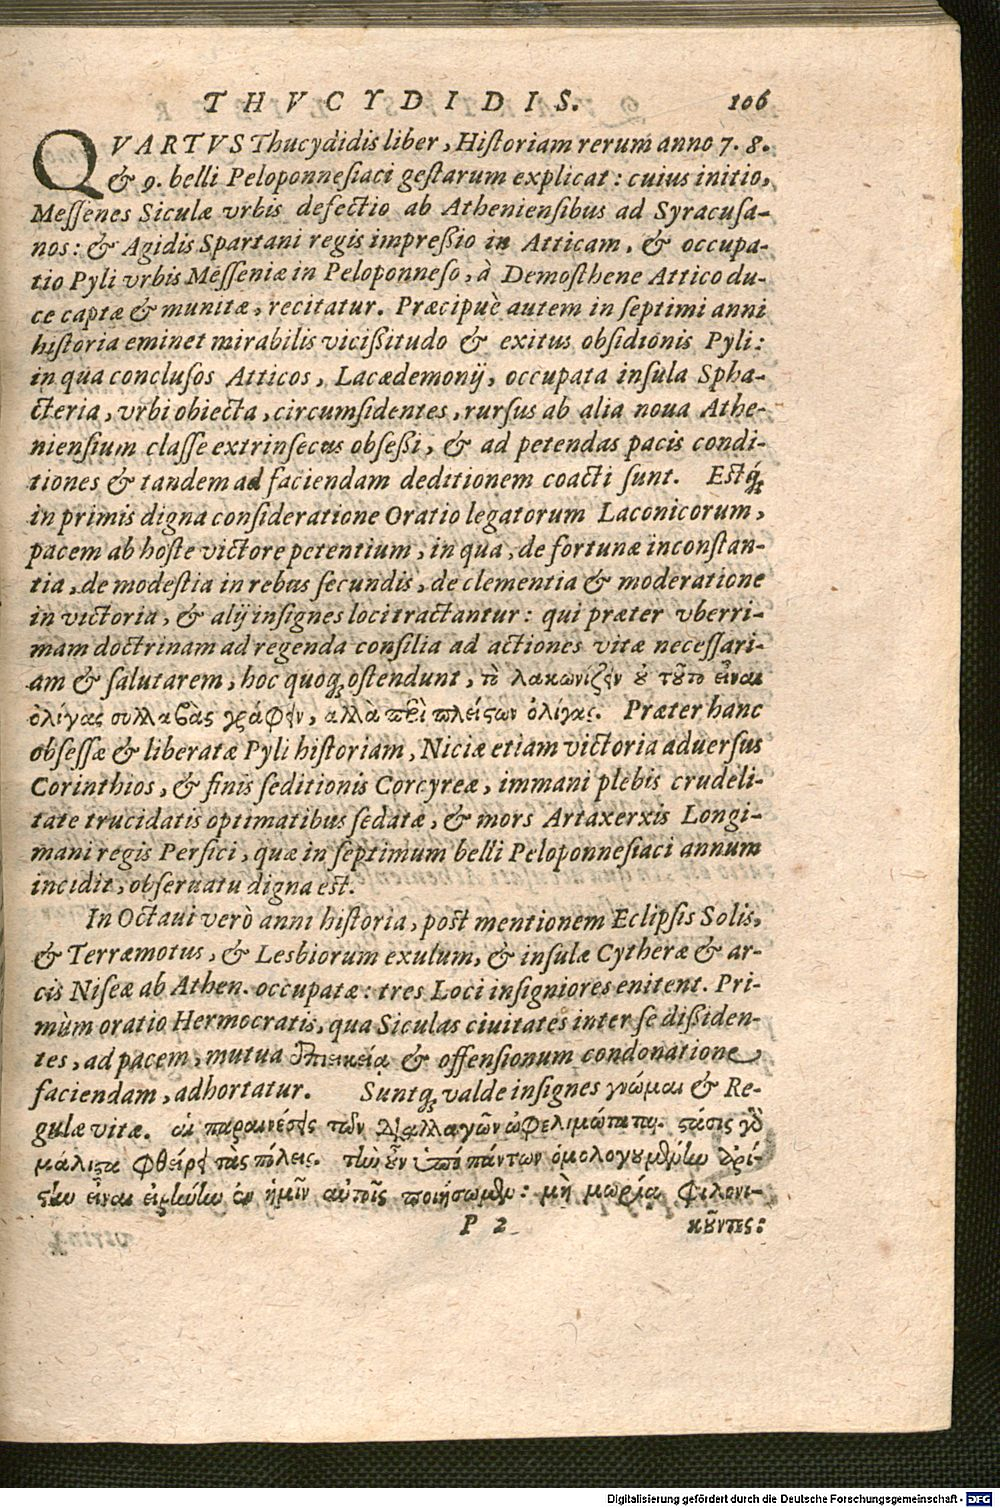 THVCYDIDIS. 106
QVARTVS Thucydidis liber, Historiam rerum anno 7. 8.
& 9. belli Peloponnesiaci gestarum explicat: cuius initio,
Messenes Siculæ vrbis defectio ab Atheniensibus ad Syracusa-
nos: & Agidis Spartani regis impreßio in Atticam, & occupa-
tio Pyli vrbis Messeniæ in Peloponneso, à Demosthene Attico du-
ce captæ & munitæ, recitatur. Præcipuè autem in septimi anni
historia eminet mirabilis vicißitudo & exitus obsidionis Pyli:
in qua conclusos Atticos, Lacædemonij, occupata insula Spha-
cteria, vrbi obiecta, circumsidentes, rursus ab alia noua Athe-
niensium classe extrinsecus obseßi, & ad petendas pacis condi-
tiones & tandem ad faciendam deditionem coacti sunt. Estq́;
in primis digna consideratione Oratio legatorum Laconicorum,
pacem ab hoste victore petentium, in qua, de fortunæ inconstan-
tia, de modestia in rebus secundis, de clementia & moderatione
in victoria, & alij insignes loci tractantur: qui præter vberri-
mam doctrinam ad regenda consilia ad actiones vitæ necessari-
am & salutarem, hoc quoq; ostendunt, τὸ λακωνίζειν ὀυ τοῦτο εἶναι
ὀλίγας συλλαβὰς γράφειν, αλλὰ περὶ πλείστων ὀλίγας. Præter hanc
obsessæ & liberatæ Pyli historiam, Niciæ etiam victoria aduersus
Corinthios, & finis seditionis Corcyreæ, immani plebis crudeli-
tate trucidatis optimatibus sedatæ, & mors Artaxerxis Longi-
mani regis Persici, quæ in septimum belli Peloponnesiaci annum
incidit, obseruatu digna est.
In Octaui verò anni historia, post mentionem Eclipsis Solis,
& Terræmotus, & Lesbiorum exulum, & insulæ Cytheræ & ar-
cis Niseæ ab Athen. occupatæ: tres Loci insigniores enitent. Pri-
mùm oratio Hermocratis, qua Siculas ciuitates inter se dißiden-
tes, ad pacem, mutua ἐπιεικεία & offensionum condonatione
faciendam, adhortatur. Suntq; valde insignes γνώμαι & Re-
gulæ vitæ. αἱ παραινέσεις τῶν διαλλαγῶν ὠφελιμώταται. στάσις γὸ
μάλιστα φθείρει τὰς πόλεις. τὴν οὖν ὑπό πάντων ὁμολογουμένην ἀρί-
στην εἶναι εἰρήνην ἐν ἡμῖν αὐτοῖς ποιήσωμεν: μὴ μωρία φιλονι-
P 2 κοῦντες:
Digitalisierung gefördert durch die Deutsche Forschungsgemeinschaft - DFG